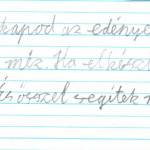 kapod az edénye
míz. Ha elkészt
És ősszel segítek n